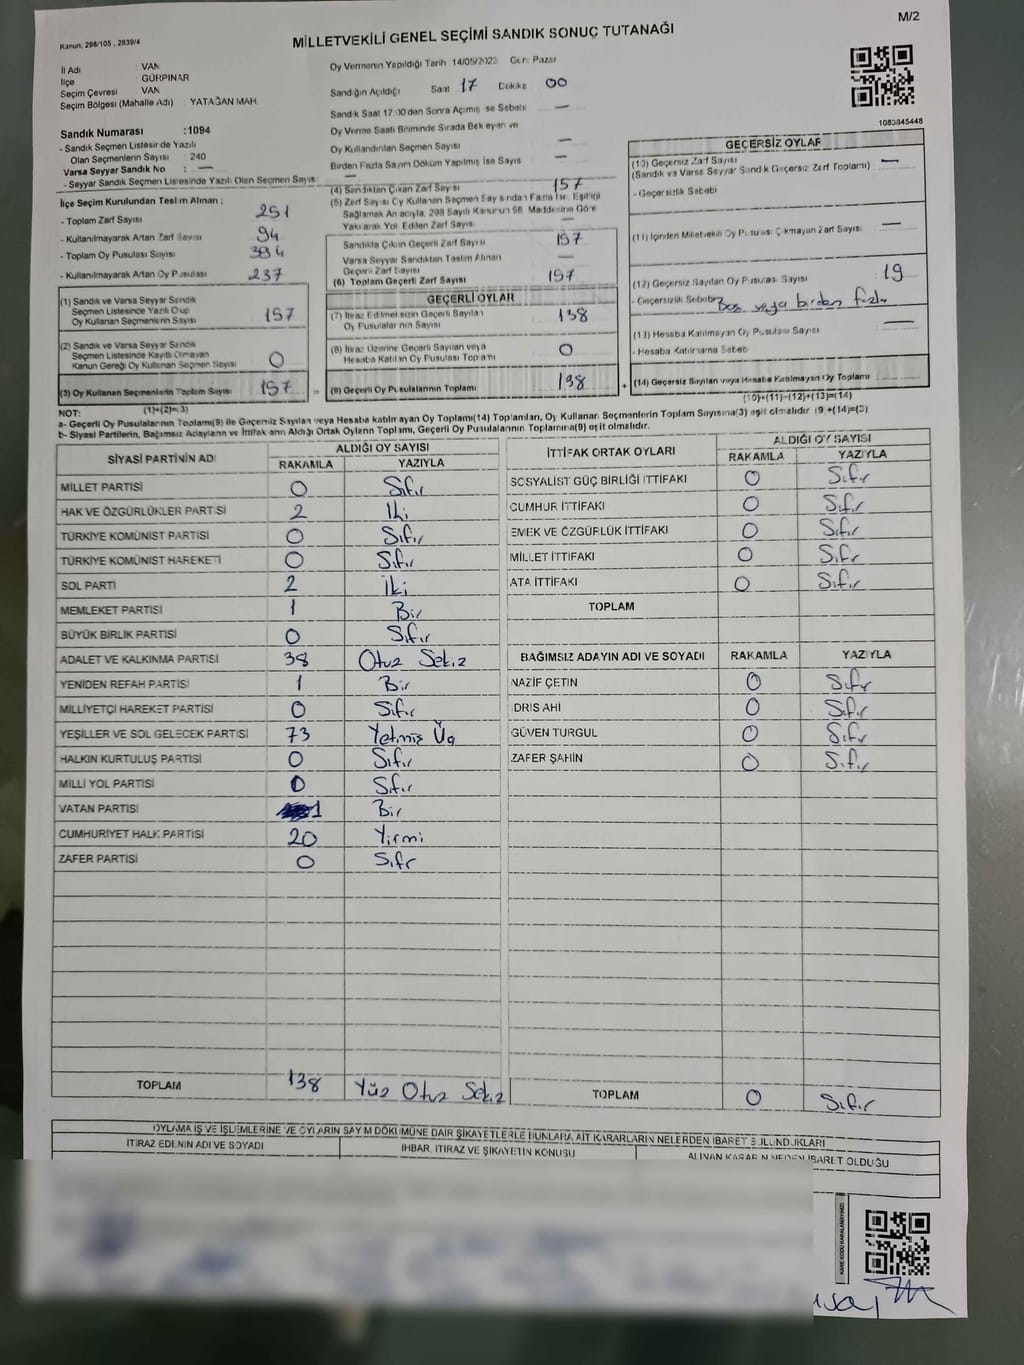 M/2
Kanun, 298/105 , 2839/4
MİLLETVEKİLİ GENEL SEÇİMİ SANDIK SONUÇ TUTANAĞI
İl Adı : VAN
İlçe : GÜRPINAR
Seçim Çevresi VAN
Seçim Bölgesi (Mahalle Adı) : YATAĞAN MAH.
Sandık Numarası :1094
- Sandık Seçmen Listesinde Yazılı
Olan Seçmenlerin Sayısı : 240
Varsa Seyyar Sandık No : —
- Seyyar Sandık Seçmen Listesinde Yazılı Olan Seçmen Sayısı : —
Oy Vermenin Yapıldığı Tarih 14/05/2023 Gün: Pazar
Sandığın Açıldığı Saat 17 Dakika 00
Sandık Saat 17:00'den Sonra Açılmış ise Sebebi —
Oy Verme Saati Bitiminde Sırada Bekleyen ve
Oy Kullandırılan Seçmen Sayısı —
Birden Fazla Sayım Döküm Yapılmış İse Sayısı —
1083845448
İlçe Seçim Kurulundan Teslim Alınan ;
- Toplam Zarf Sayısı 251
- Kullanılmayarak Artan Zarf Sayısı 94
- Toplam Oy Pusulası Sayısı 394
- Kullanılmayarak Artan Oy Pusulası 237
(1) Sandık ve Varsa Seyyar Sandık
Seçmen Listesinde Yazılı Olup
Oy Kullanan Seçmenlerin Sayısı 157
(2) Sandık ve Varsa Seyyar Sandık
Seçmen Listesinde Kayıtlı Olmayan
Kanun Gereği Oy Kullanan Seçmen Sayısı 0
(3) Oy Kullanan Seçmenlerin Toplam Sayısı 157
(1)+(2)=(3)
(4) Sandıktan Çıkan Zarf Sayısı 157
(5) Zarf Sayısı Oy Kullanan Seçmen Sayısından Fazla İse, Eşitliği
Sağlamak Amacıyla, 298 Sayılı Kanunun 98. Maddesine Göre
Yakılarak Yok Edilen Zarf Sayısı —
Sandıkta Çıkan Geçerli Zarf Sayısı 157
Varsa Seyyar Sandıktan Teslim Alınan
Geçerli Zarf Sayısı —
(6) Toplam Geçerli Zarf Sayısı 157
GEÇERLİ OYLAR
(7) İtiraz Edilmeksizin Geçerli Sayılan
Oy Pusulalarının Sayısı 138
(8) İtiraz Üzerine Geçerli Sayılan veya
Hesaba Katılan Oy Pusulası Toplamı 0
= (9) Geçerli Oy Pusulalarının Toplamı 138 +
GEÇERSİZ OYLAR
(10) Geçersiz Zarf Sayısı
(Sandık ve Varsa Seyyar Sandık Geçersiz Zarf Toplamı) : —
- Geçersizlik Sebebi
(11) İçinden Milletvekili Oy Pusulası Çıkmayan Zarf Sayısı : —
(12) Geçersiz Sayılan Oy Pusulası Sayısı : 19
- Geçersizlik Sebebi: Boş veya birden fazla
(13) Hesaba Katılmayan Oy Pusulası Sayısı : —
- Hesaba Katılmama Sebebi
(14) Geçersiz Sayılan veya Hesaba Katılmayan Oy Toplamı :
(10)+(11)+(12)+(13)=(14)
NOT:
a- Geçerli Oy Pusulalarının Toplamı(9) ile Geçersiz Sayılan veya Hesaba katılmayan Oy Toplamı(14) Toplamları, Oy Kullanan Seçmenlerin Toplam Sayısına(3) eşit olmalıdır (9)+(14)=(3)
b- Siyasi Partilerin, Bağımsız Adayların ve İttifakların Aldığı Ortak Oyların Toplamı, Geçerli Oy Pusulalarının Toplamına(9) eşit olmalıdır.
SİYASİ PARTİNİN ADI ALDIĞI OY SAYISI
RAKAMLA YAZIYLA
MİLLET PARTİSİ 0 Sıfır
HAK VE ÖZGÜRLÜKLER PARTİSİ 2 İki
TÜRKİYE KOMÜNİST PARTİSİ 0 Sıfır
TÜRKİYE KOMÜNİST HAREKETİ 0 Sıfır
SOL PARTİ 2 İki
MEMLEKET PARTİSİ 1 Bir
BÜYÜK BİRLİK PARTİSİ 0 Sıfır
ADALET VE KALKINMA PARTİSİ 38 Otuz Sekiz
YENİDEN REFAH PARTİSİ 1 Bir
MİLLİYETÇİ HAREKET PARTİSİ 0 Sıfır
YEŞİLLER VE SOL GELECEK PARTİSİ 73 Yetmiş Üç
HALKIN KURTULUŞ PARTİSİ 0 Sıfır
MİLLİ YOL PARTİSİ 0 Sıfır
VATAN PARTİSİ 1 Bir
CUMHURİYET HALK PARTİSİ 20 Yirmi
ZAFER PARTİSİ 0 Sıfır
TOPLAM 138 Yüz Otuz Sekiz
İTTİFAK ORTAK OYLARI ALDIĞI OY SAYISI
RAKAMLA YAZIYLA
SOSYALİST GÜÇ BİRLİĞİ İTTİFAKI 0 Sıfır
CUMHUR İTTİFAKI 0 Sıfır
EMEK VE ÖZGÜRLÜK İTTİFAKI 0 Sıfır
MİLLET İTTİFAKI 0 Sıfır
ATA İTTİFAKI 0 Sıfır
TOPLAM
BAĞIMSIZ ADAYIN ADI VE SOYADI RAKAMLA YAZIYLA
NAZİF ÇETİN 0 Sıfır
İDRİS AHİ 0 Sıfır
GÜVEN TURGUL 0 Sıfır
ZAFER ŞAHİN 0 Sıfır
TOPLAM 0 Sıfır
OYLAMA İŞ VE İŞLEMLERİNE VE OYLARIN SAYIM DÖKÜMÜNE DAİR ŞİKAYETLERLE BUNLARA AİT KARARLARIN NELERDEN İBARET BULUNDUKLARI
İTİRAZ EDENİN ADI VE SOYADI İHBAR, İTİRAZ VE ŞİKAYETİN KONUSU ALINAN KARARIN NEDEN İBARET OLDUĞU
KARE KODU KARALAMAYINIZ!